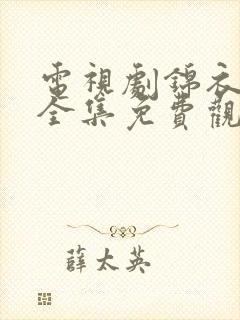 電視劇錦衣
全集免費觀
薛太英